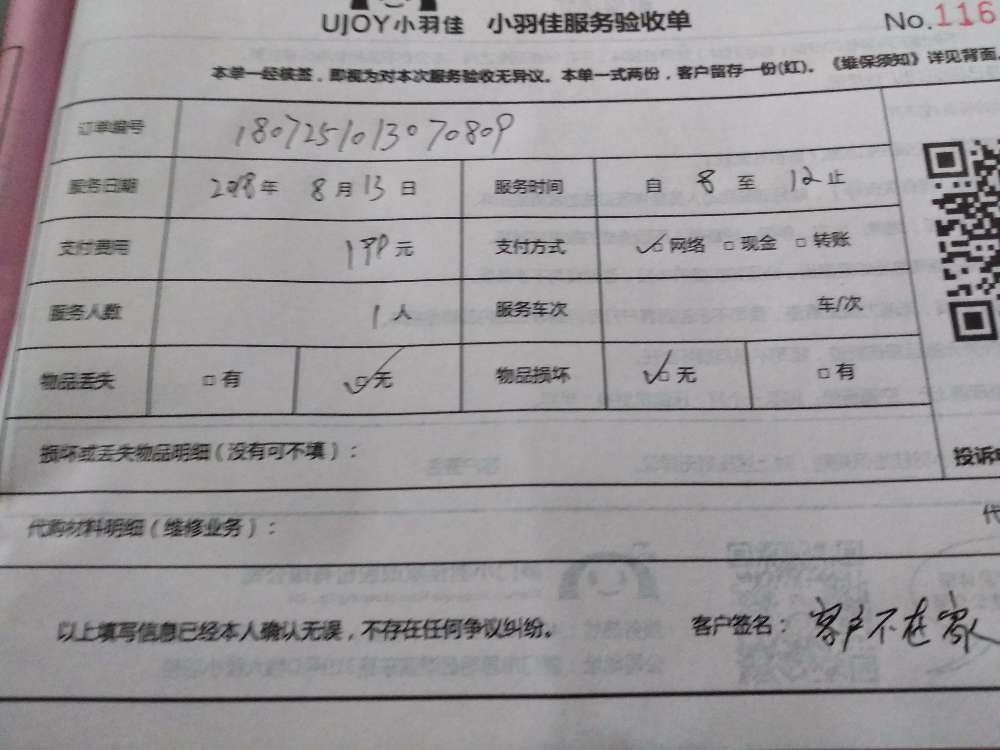 UJOY小羽佳 小羽佳服务验收单 No.116
本单一经核签，即视为对本次服务验收无异议。本单一式两份，客户留存一份(红)。《维保须知》详见背面。
订单编号 180725101307080​9
服务日期 2018年 8月13日 服务时间 自 8 至 12止
支付费用 199元 支付方式 ✓□网络 □现金 □转账
服务人数 1人 服务车次 车/次
物品丢失 □有 ✓□无 物品损坏 ✓□无 □有
损坏或丢失物品明细（没有可不填）： 投诉
代购材料明细（维修业务）： 代
以上填写信息已经本人确认无误，不存在任何争议纠纷。 客户签名：客户不在家